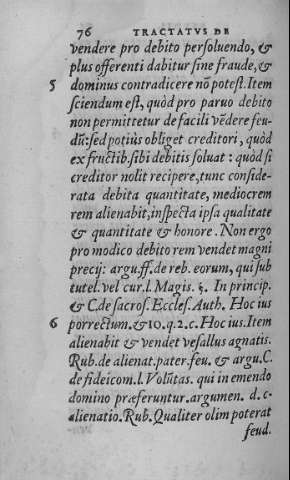 76 TRACTATVS DE
vendere pro debito persoluendo, &
plus offerenti dabitur sine fraude, &
5 dominus contradicere nō potest. Item
sciendum est, quòd pro paruo debito
non permittetur de facili vēdere feu-
dū: sed potiùs obliget creditori, quòd
ex fructib. sibi debitis soluat: quòd si
creditor nolit recipere, tunc conside-
rata debita quantitate, mediocrem
rem alienabit, inspecta ipsa qualitate
& quantitate & honore. Non ergo
pro modico debito rem vendet magni
precij: argu. ff. de reb. eorum, qui sub
tutel. vel cur. l. Magis. §. In princip.
& C. de sacros. Eccles. Auth. Hoc ius
6 porrectum. & 10. q. 2. c. Hoc ius. Item
alienabit & vendet vasallus agnatis.
Rub. de alienat. pater. feu. & argu. C.
de fideicom. l. Volūtas. qui in emendo
domino præferuntur. argumen. d. c.
alienatio. Rub. Qualiter olim poterat
feud.